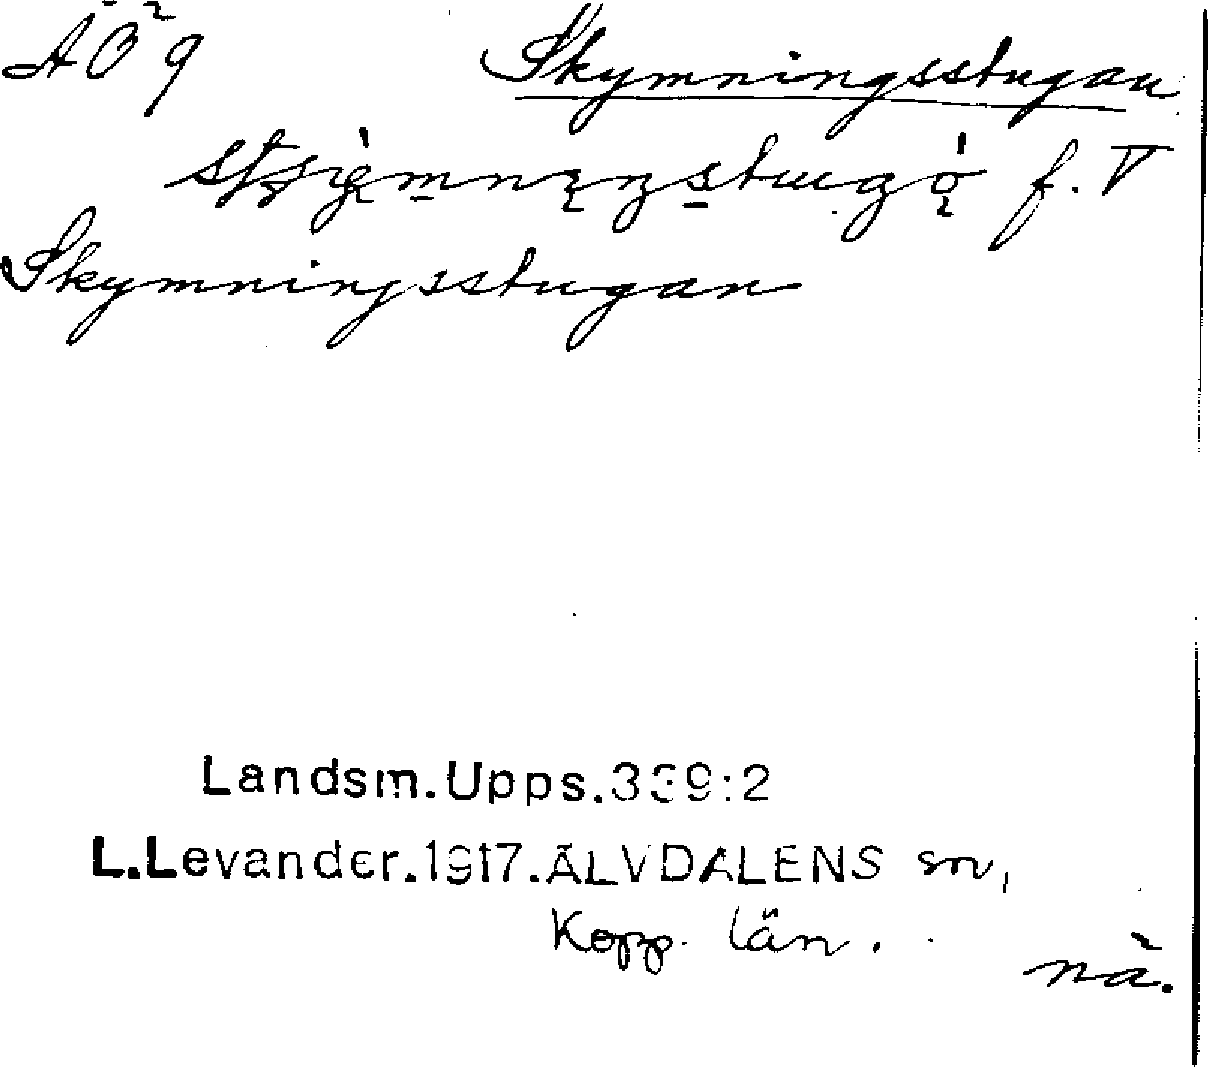 ÄÖ 9 Skymningsstugan
f. V
Skymningsstugan
Landsm.Upps.339:2
L.Levander.1917.ÄLVDALENS sn,
Kopp. län.
nä.